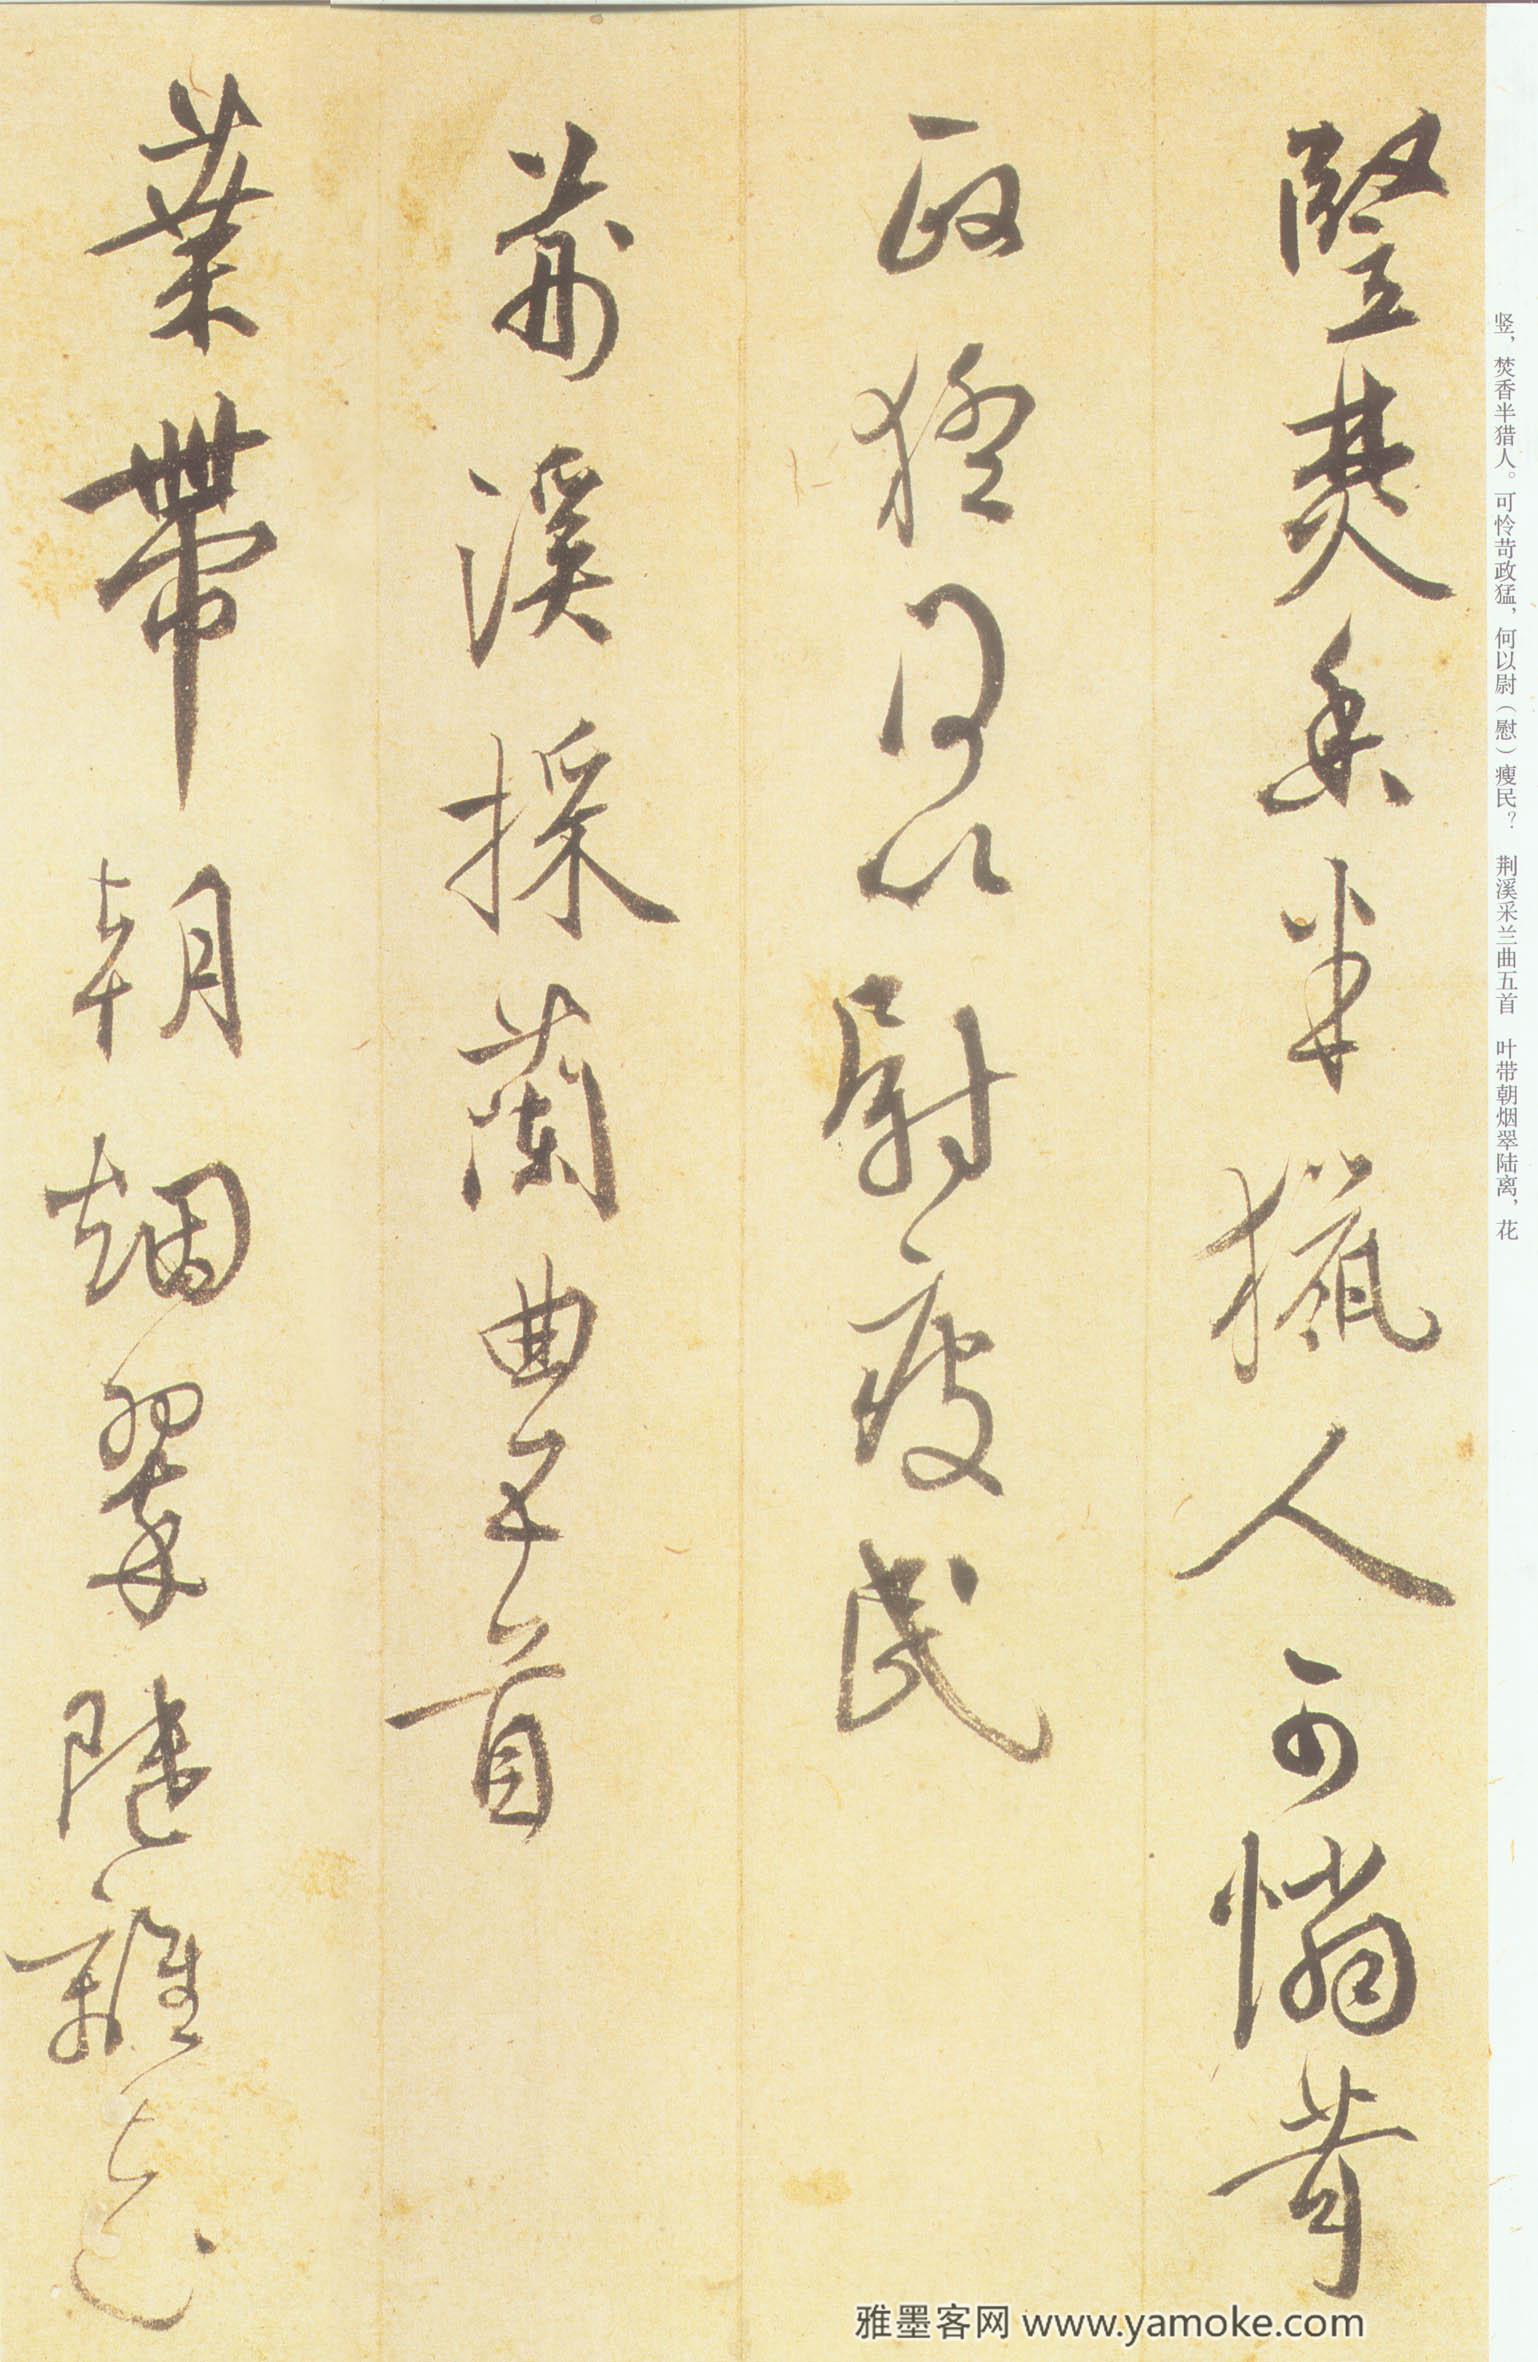 竖，焚香半猎人。可怜苛政猛，何以尉（慰）瘦民？　荆溪采兰曲五首　叶带朝烟翠陆离，花
豎焚香半獵人可憐苛
政猛何以尉瘦民
荆溪採蘭曲五首
葉帶朝烟翠陸離花
雅墨客网 www.yamoke.com